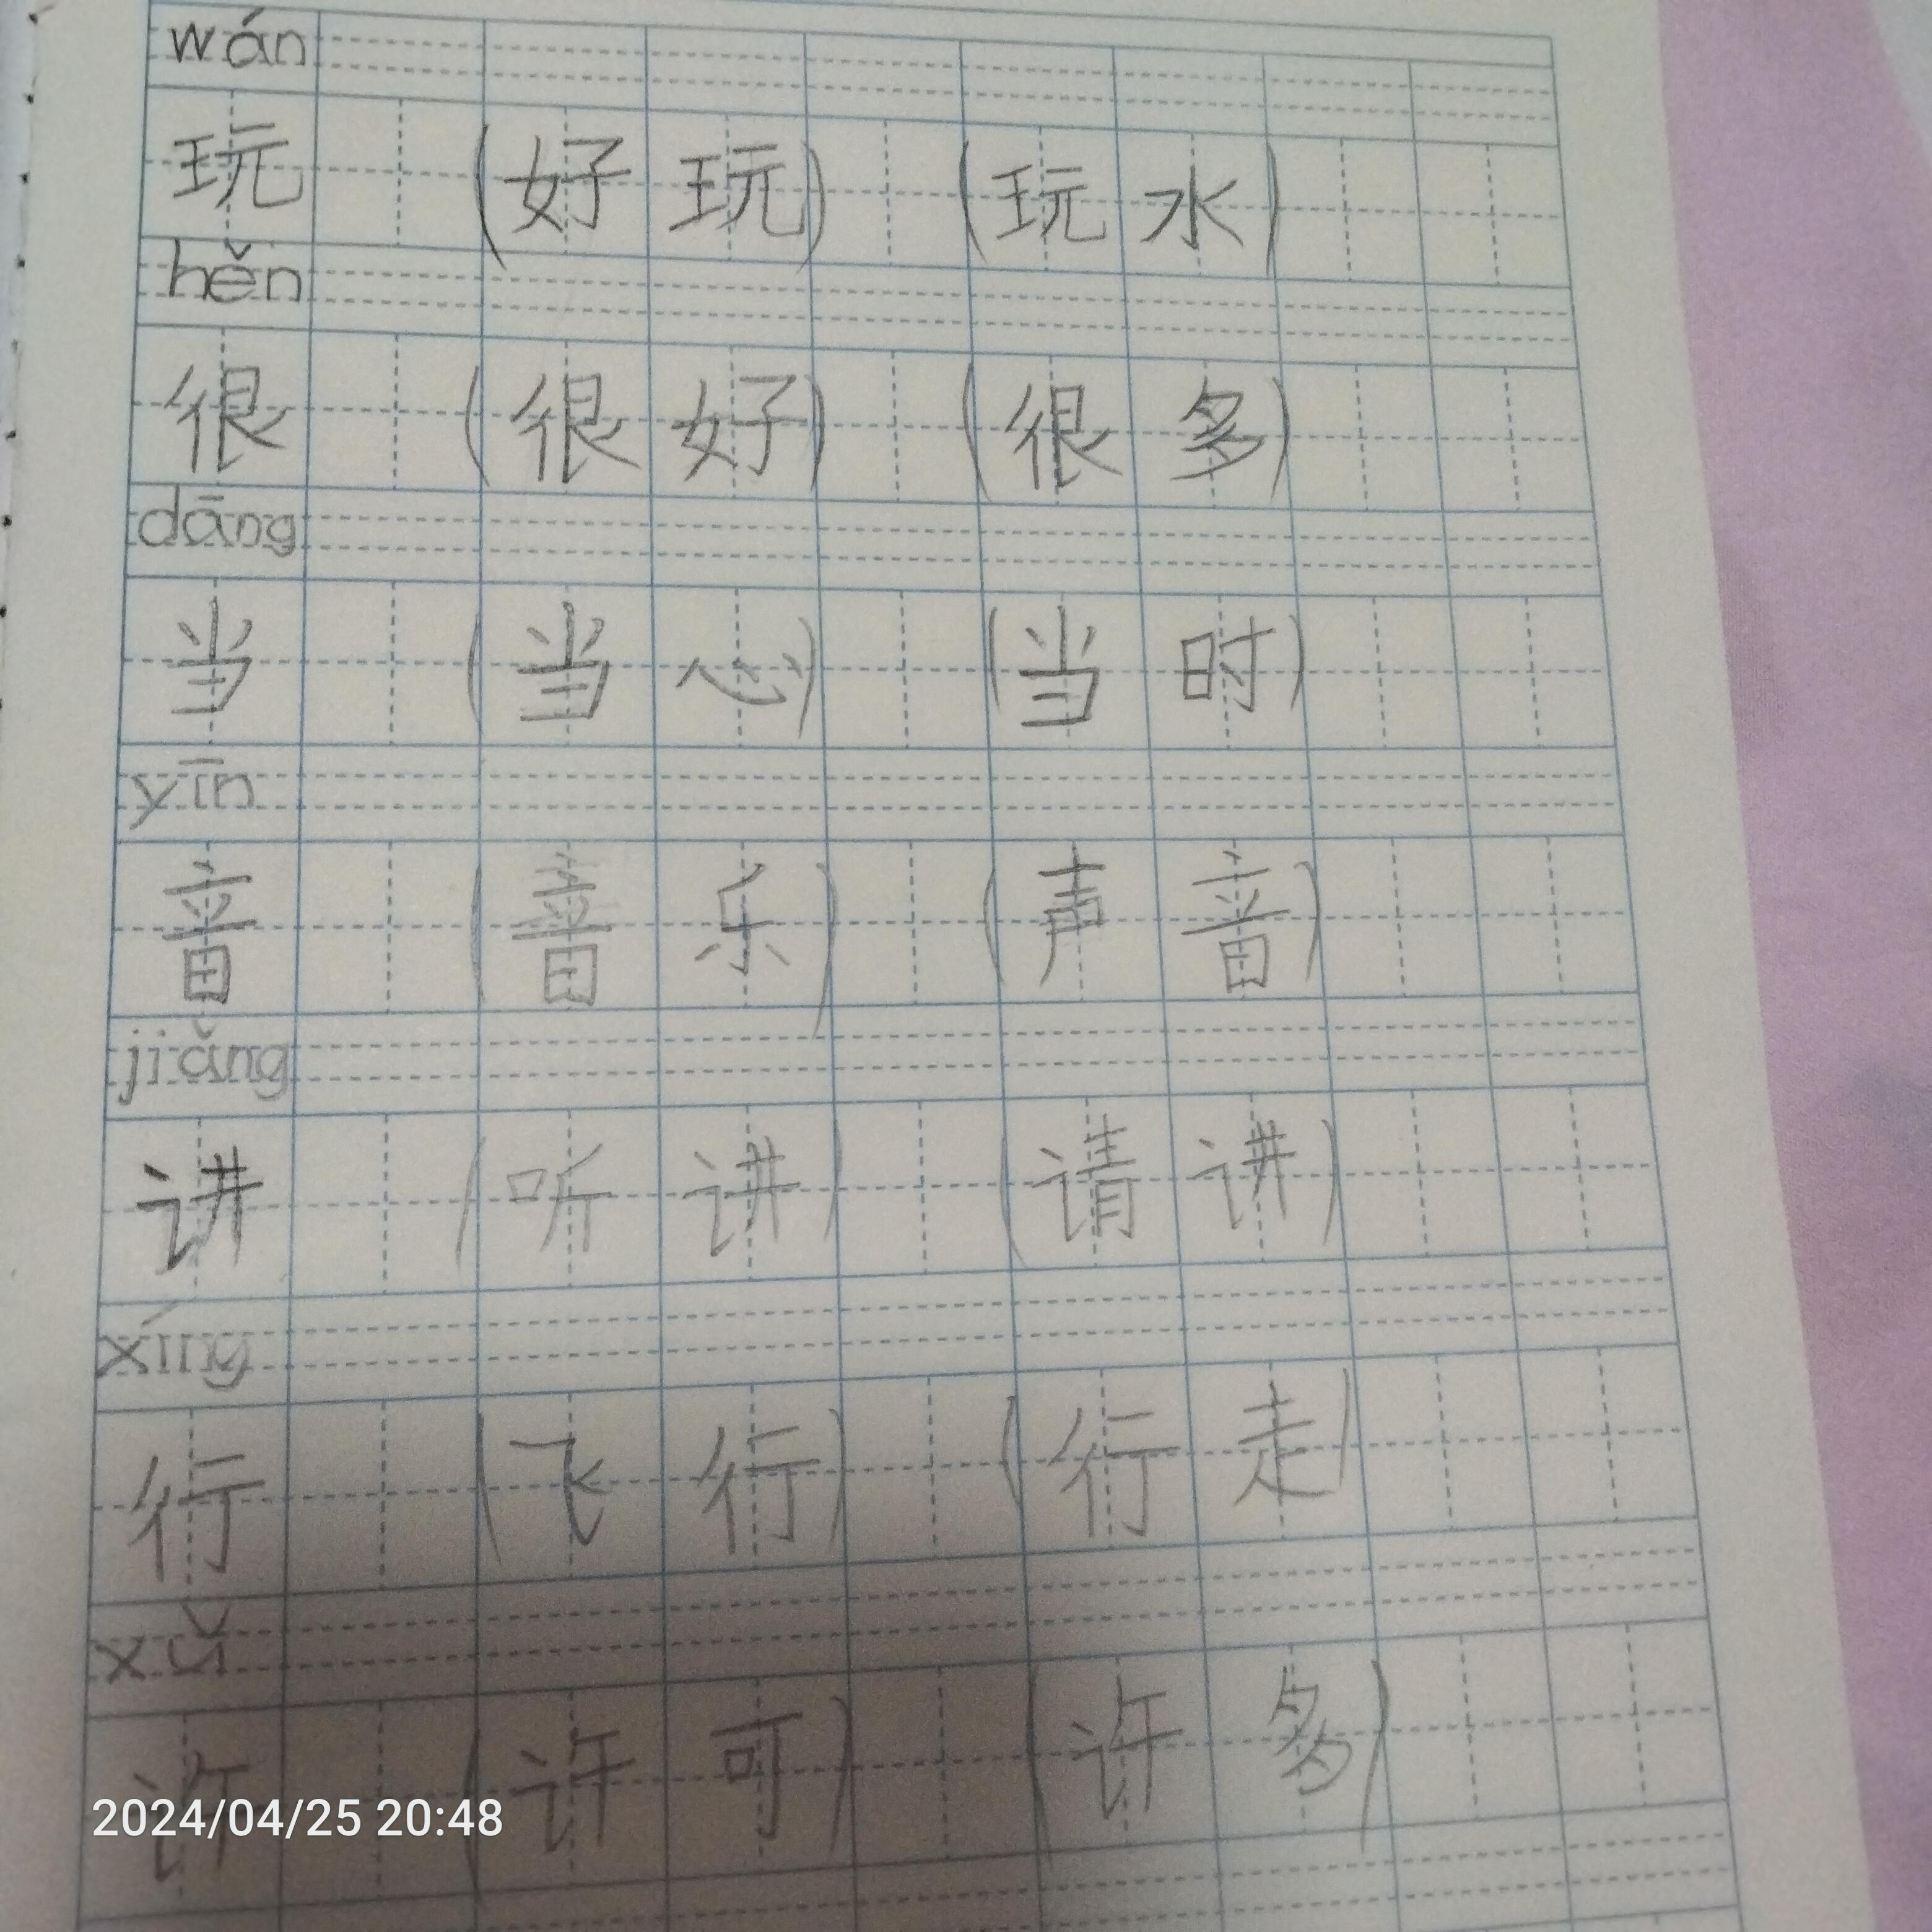 wán
玩 (好玩) (玩水)
hěn
很 (很好) (很多)
dāng
当 (当心) (当时)
yīn
音 (音乐) (声音)
jiǎng
讲 (听讲) (请讲)
xíng
行 (飞行) (行走)
xǔ
许 (许可) (许多)
2024/04/25 20:48